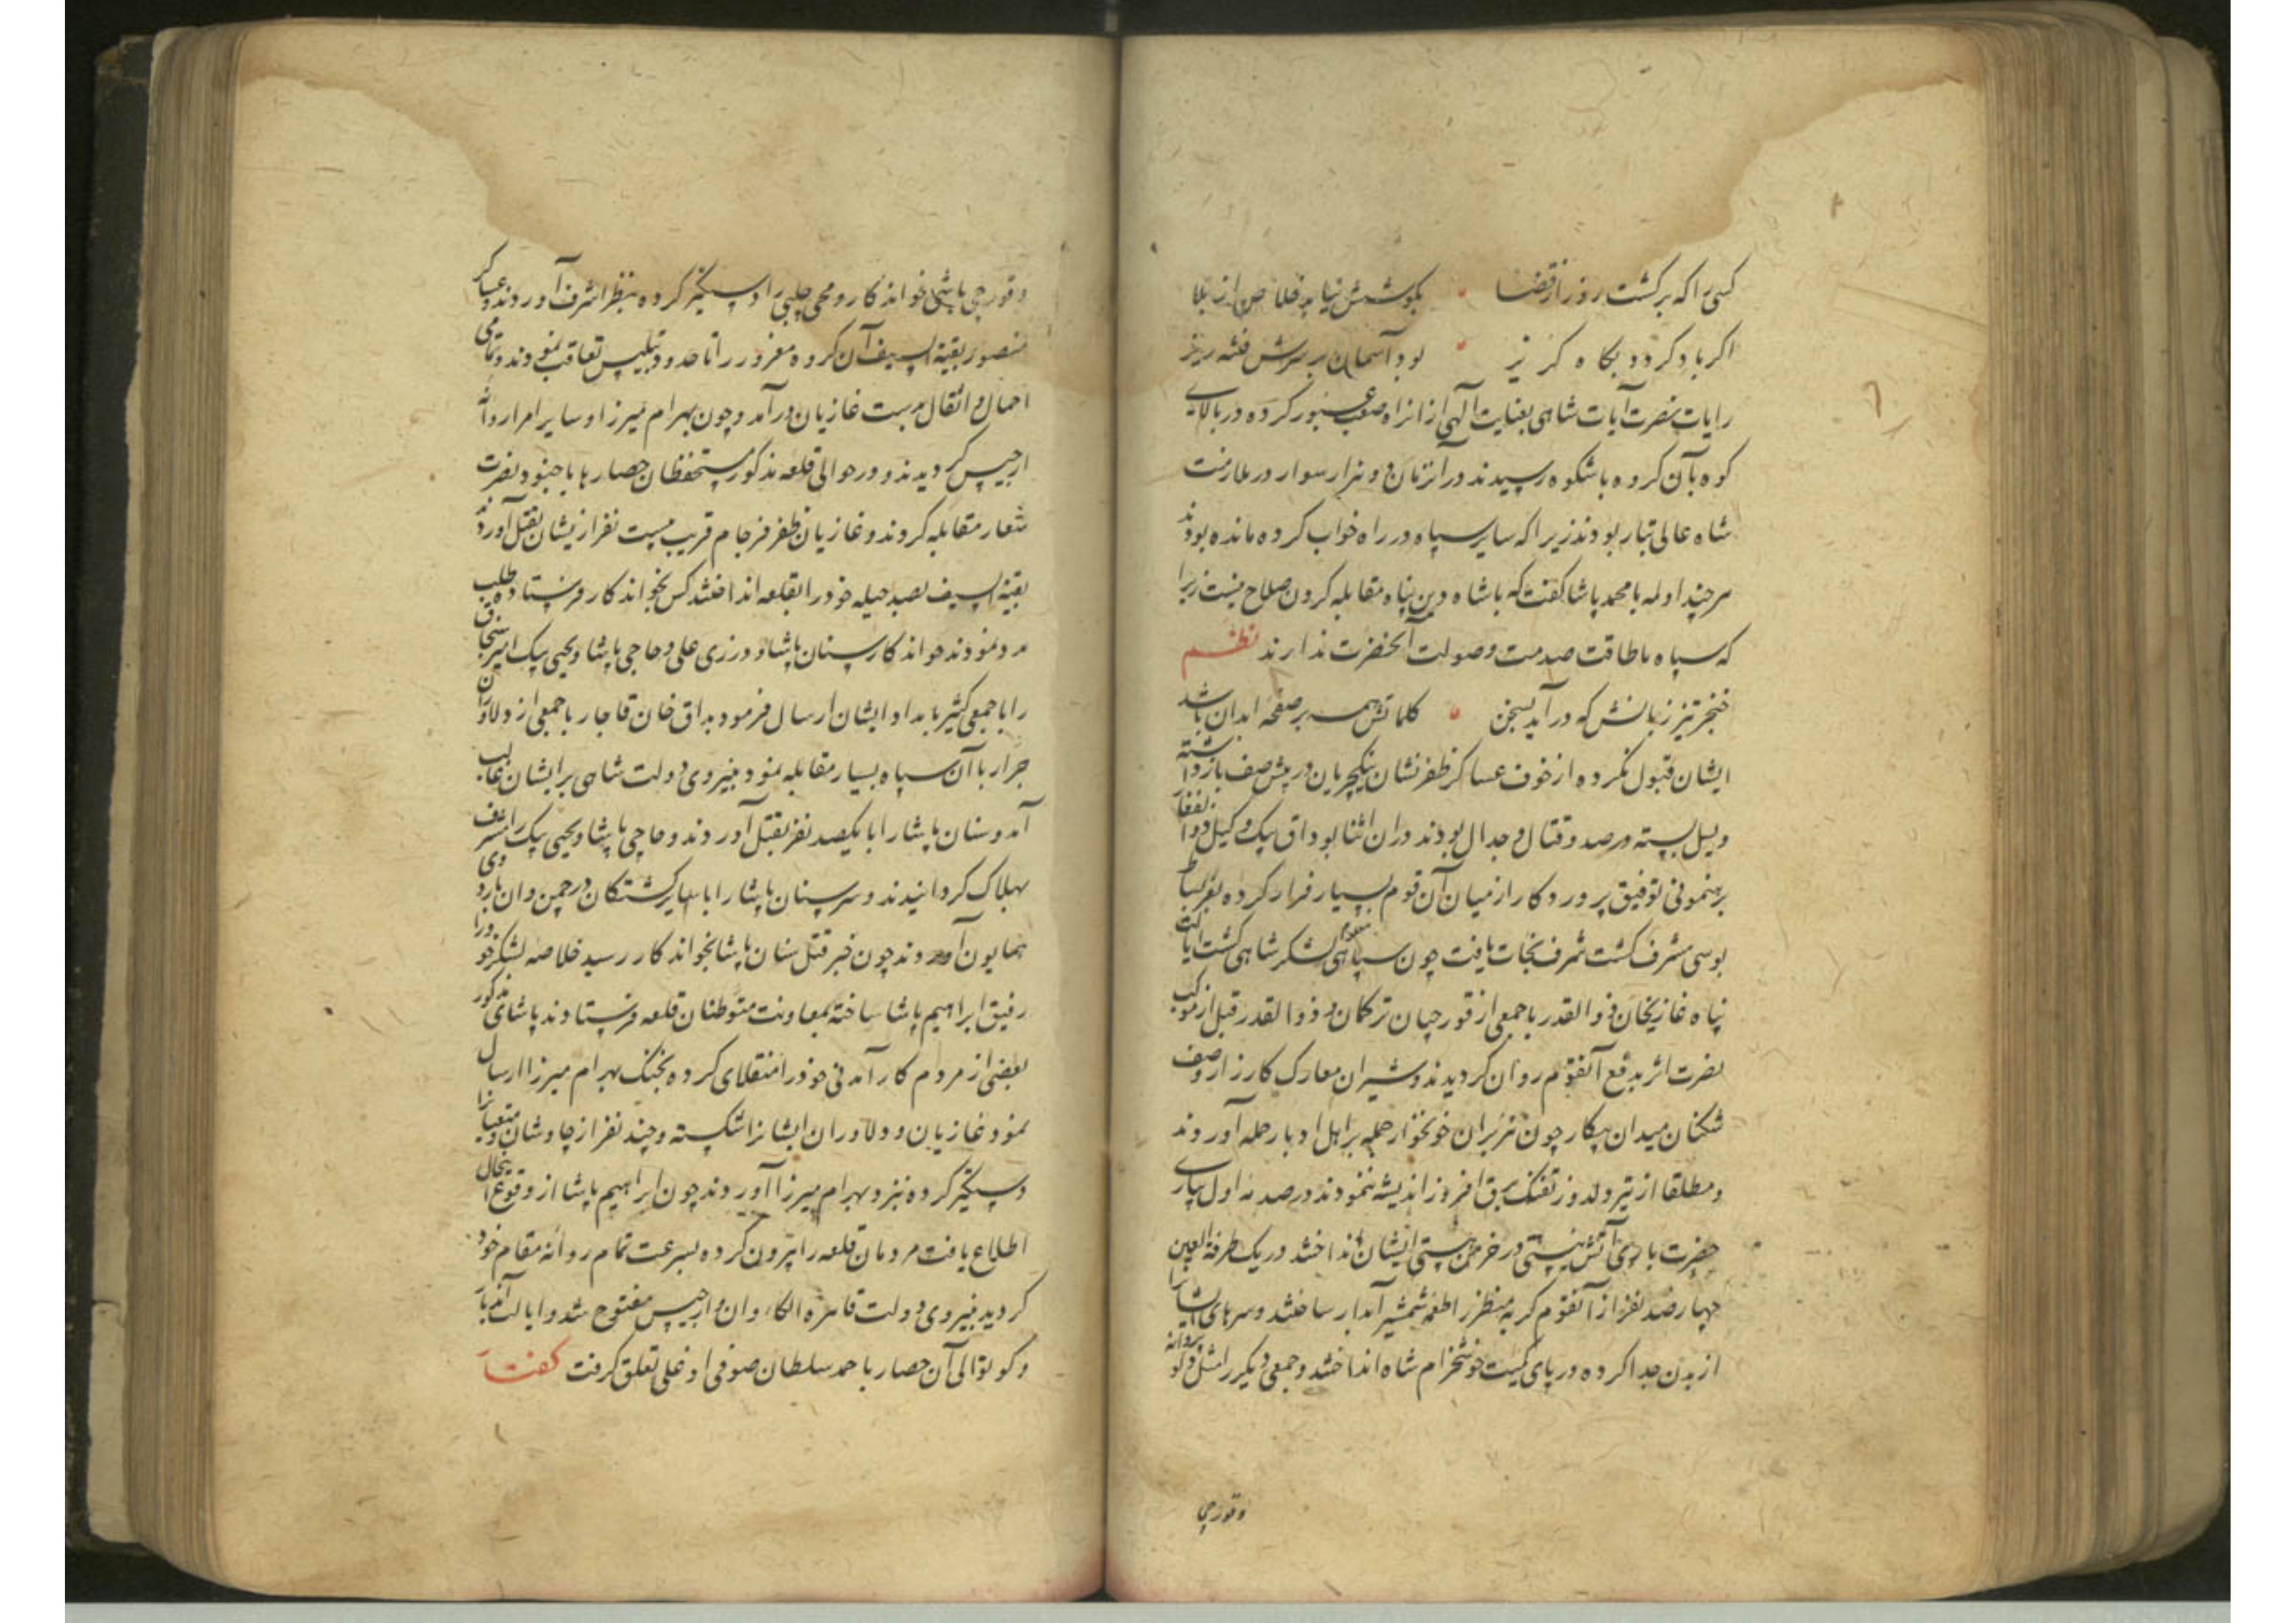 کسی را که برکشت روز از قضا بکوشش نیابد خلاص از بلا
اکر باد کردد بکاه کریز بود آسمان بر سرش فتنه ریز
رایات نصرت آیات شاهی بعنایت الهی از انراه صعب عبور کرده در بالای
کوه بآن کروه باشکوه رسیدند در آنزمان دو هزار سوار در ملازمت
شاه عالی تبار بودند زیرا که سایر سپاه در راه خواب کرده مانده بودند
هرچند اولمه با محمد پاشا کفت که با شاه دین پناه مقابله کردن صلاح نیست زیرا
که سپاه ما طاقت صدمت و صولت آنحضرت ندارند نظم
خنجر تیز زبانش که درآید بسخن کلماتش همه بر صفحه ابدان باشد
ایشان قبول نکرده از خوف عساکر ظفر نشان ینکچریان در پیش صف بازداشته
و پسل بسته مرصد و قتال و جدال بودند در ان اثنا بوداق بیک وکیل ذوالفقار
برهنمونی توفیق پروردکار از میان آن قوم بسیار فرار کرده بعز بساط
بوسی مشرف کشت شرف نجات یافت چون سپاهی لشکر شاهی کشت ایالت
پناه غازیخان ذوالقدر با جمعی از قورچیان ترکمان و ذوالقدر قبل از موکب
نصرت اثر بدفع آنقوم روان کردیدند و شیران معارک کارزار وصف
شکنان میدان پیکار چون هزبران خونخوار حمله بر اهل ادبار حمله آوردند
و مطلقا از تیر دلدوز تفنک برق افروز اندیشه ننمودند در صدمه اول بیاری
حضرت باری آتش نیستی در خرمن هستی ایشان انداختند در یک طرفة العین
چهارصد نفر از آنقوم کریه منظر را طعمه شمشیر آبدار ساختند و سرهای ایشانرا
از بدن جدا کرده در پای کمیت خوشخرام شاه انداختند و جمعی دیکر را مثل پروانه
وقورچی
و قورچی باشی خواندکار و محمی چلبی را دستکیر کرده بنظر اشرف آوردند و عساکر
منصور بقیة السیف آن کروه مغرور را تا حدود تبلیس تعاقب نمودند و تمامی
احمال و اثقال بدست غازیان درآمد و چون بهرام میرزا و سایر امرا روانه
ارجیس کردیدند و در حوالی قلعه مذکور مستحفظان حصارها با جنود نصرت
شعار مقابله کردند و غازیان ظفر فرجام قریب بیست نفر ازیشان بقتل آوردند
بقیة السیف بصد حیله خود را بقلعه انداختند کس بخواندکار فرستاده طلب
مدد نمودند خواندکار سنان پاشا و درزی علی و حاجی پاشا و یحیی بیک امیر سنجاق
را با جمعی کثیر بامداد ایشان ارسال فرمود بداق خان قاجار با جمعی از دلاوران
جرار با آن سپاه بسیار مقابله نمود بنیروی دولت شاهی بر ایشان غالب
آمد و سنان پاشا را با یکصد نفر بقتل آوردند و حاجی پاشا و یحیی بیک را مشرف
بهلاک کردانیدند و سر سنان پاشا را با سایر کشتکان در چمن وان باردوی
همایون آوردند چون خبر قتل سنان پاشا بخواندکار رسید خلاصه لشکر خود را
رفیق ابراهیم پاشا ساخته بمعاونت متوطنان قلعه فرستادند پاشای مذکور
بعضی از مردم کارآمدنی خود را منقلای کرده بجنک بهرام میرزا ارسال
نمود غازیان و دلاوران ایشانرا شکسته و چند نفر از چاوشان و متعینانرا
دستکیر کرده نزد بهرام میرزا آوردند چون ابراهیم پاشا از وقوع اینحال
اطلاع یافت مردمان قلعه را بیرون کرده بسرعت تمام روانه مقام خود
کردید بنیروی دولت قاهره الکاء وان و ارجیس مفتوح شد و ایالت آندیار
و کوتوالی آن حصار باحمد سلطان صوفی اوغلی تعلق کرفت کفتار